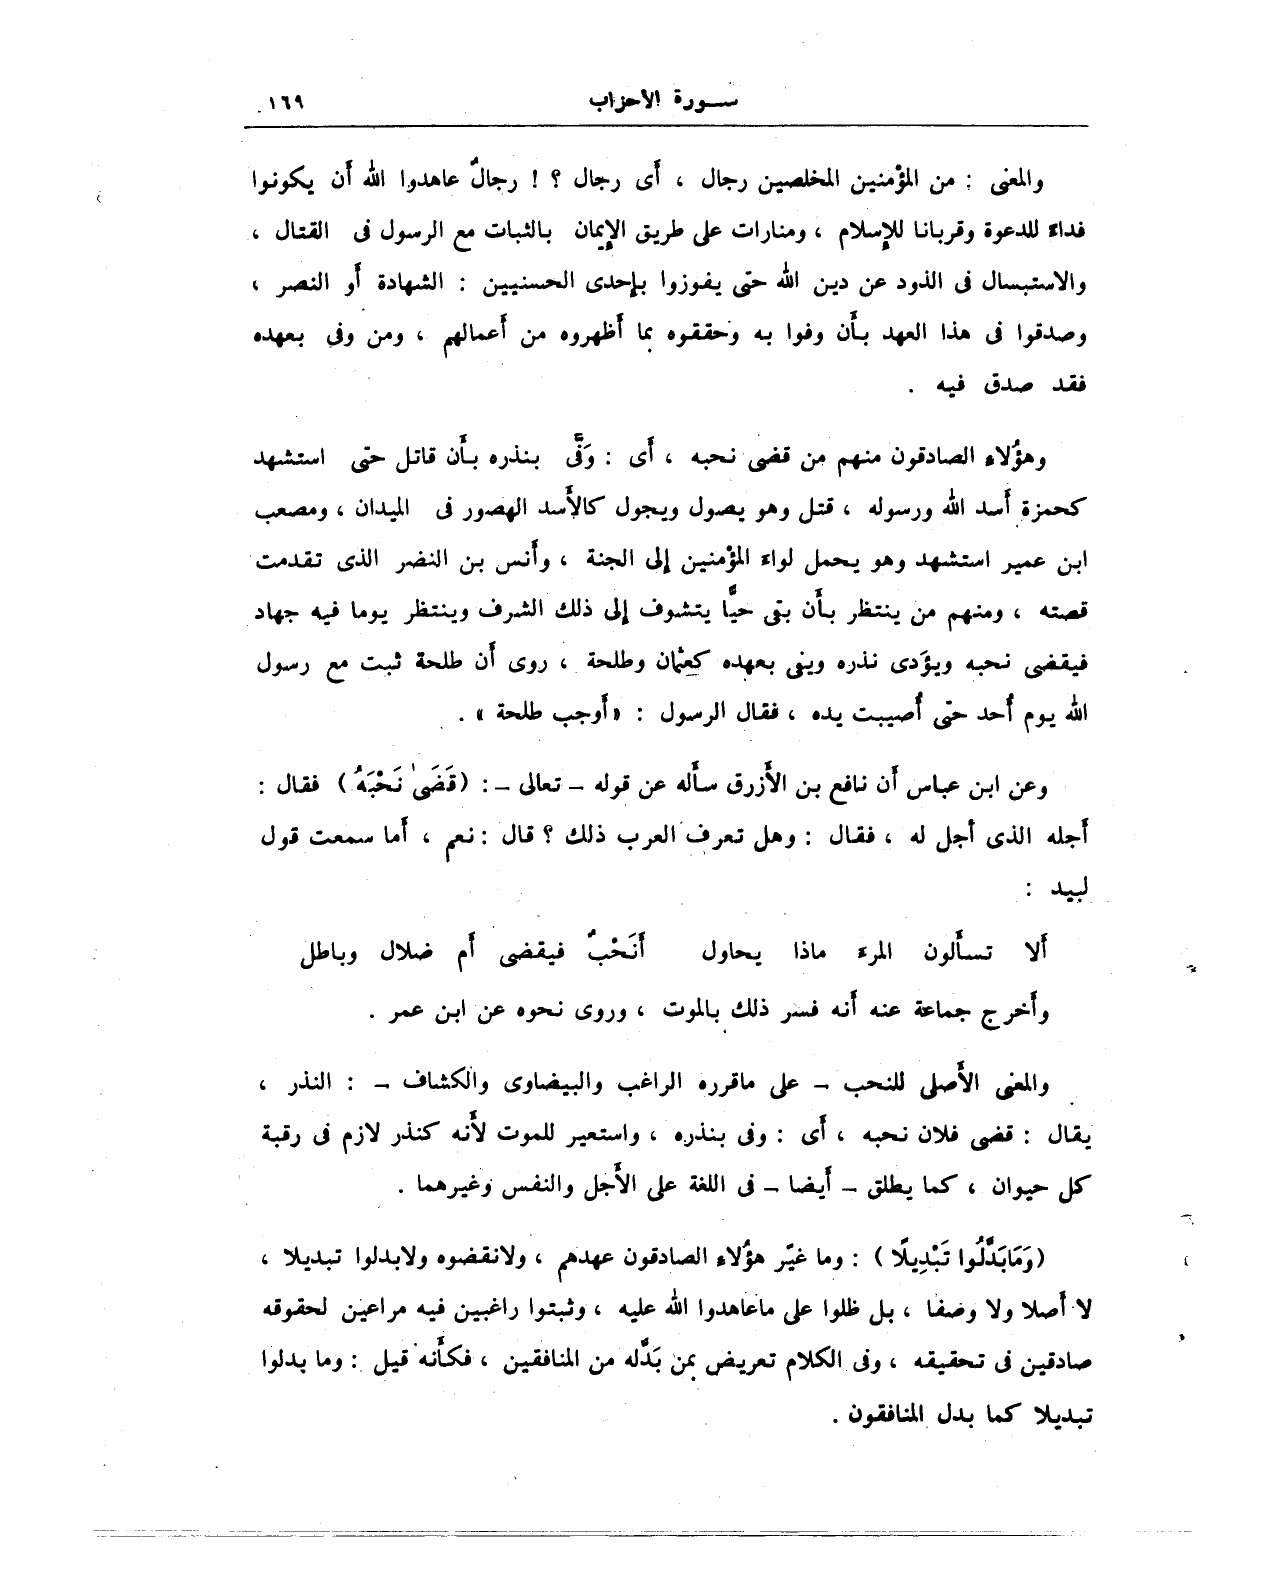 سورة الأحزاب ١٦٩
والمعنى : من المؤمنين المخلصين رجال ، أى رجال ؟ ! رجالٌ عاهدوا الله أن يكونوا
فداء للدعوة وقربانا للإسلام ، ومنارات على طريق الإيمان بالثبات مع الرسول فى القتال ،
والاستبسال فى الذود عن دين الله حتى يفوزوا بإحدى الحسنيين : الشهادة أو النصر ،
وصدقوا فى هذا العهد بأن وفوا به وحققوه بما أظهروه من أعمالهم ، ومن وفى بعهده
فقد صدق فيه .
وهؤلاء الصادقون منهم من قضى نحبه ، أى : وَفَّى بنذره بأن قاتل حتى استشهد
كحمزة أسد الله ورسوله ، قتل وهو يصول ويجول كالأسد الهصور فى الميدان ، ومصعب
ابن عمير استشهد وهو يحمل لواء المؤمنين إلى الجنة ، وأنس بن النضر الذى تقدمت
قصته ، ومنهم من ينتظر بأن بقى حيًّا يتشوف إلى ذلك الشرف وينتظر يوما فيه جهاد
فيقضى نحبه ويؤدى نذره ويفى بعهده كعثمان وطلحة ، روى أن طلحة ثبت مع رسول
الله يوم أُحد حتى أُصيبت يده ، فقال الرسول : «أوجب طلحة» .
وعن ابن عباس أن نافع بن الأزرق سأله عن قوله - تعالى - : (قَضَىٰ نَحْبَهُ) فقال :
أجله الذى أجل له ، فقال : وهل تعرف العرب ذلك ؟ قال : نعم ، أما سمعت قول
لبيد :
ألا تسألون المرء ماذا يحاول أَنَحْبٌ فيقضى أم ضلال وباطل
وأخرج جماعة عنه أنه فسر ذلك بالموت ، وروى نحوه عن ابن عمر .
والمعنى الأصلى للنحب - على ماقرره الراغب والبيضاوى والكشاف - : النذر ،
يقال : قضى فلان نحبه ، أى : وفى بنذره ، واستعير للموت لأنه كنذر لازم فى رقبة
كل حيوان ، كما يطلق - أيضا - فى اللغة على الأجل والنفس وغيرهما .
(وَمَابَدَّلُوا تَبْدِيلًا) : وما غيّر هؤلاء الصادقون عهدهم ، ولانقضوه ولابدلوا تبديلا ،
لا أصلا ولا وصفا ، بل ظلوا على ماعاهدوا الله عليه ، وثبتوا راغبين فيه مراعين لحقوقه
صادقين فى تحقيقه ، وفى الكلام تعريض بمن بَدَّله من المنافقين ، فكأنه قيل : وما بدلوا
تبديلا كما بدل المنافقون .